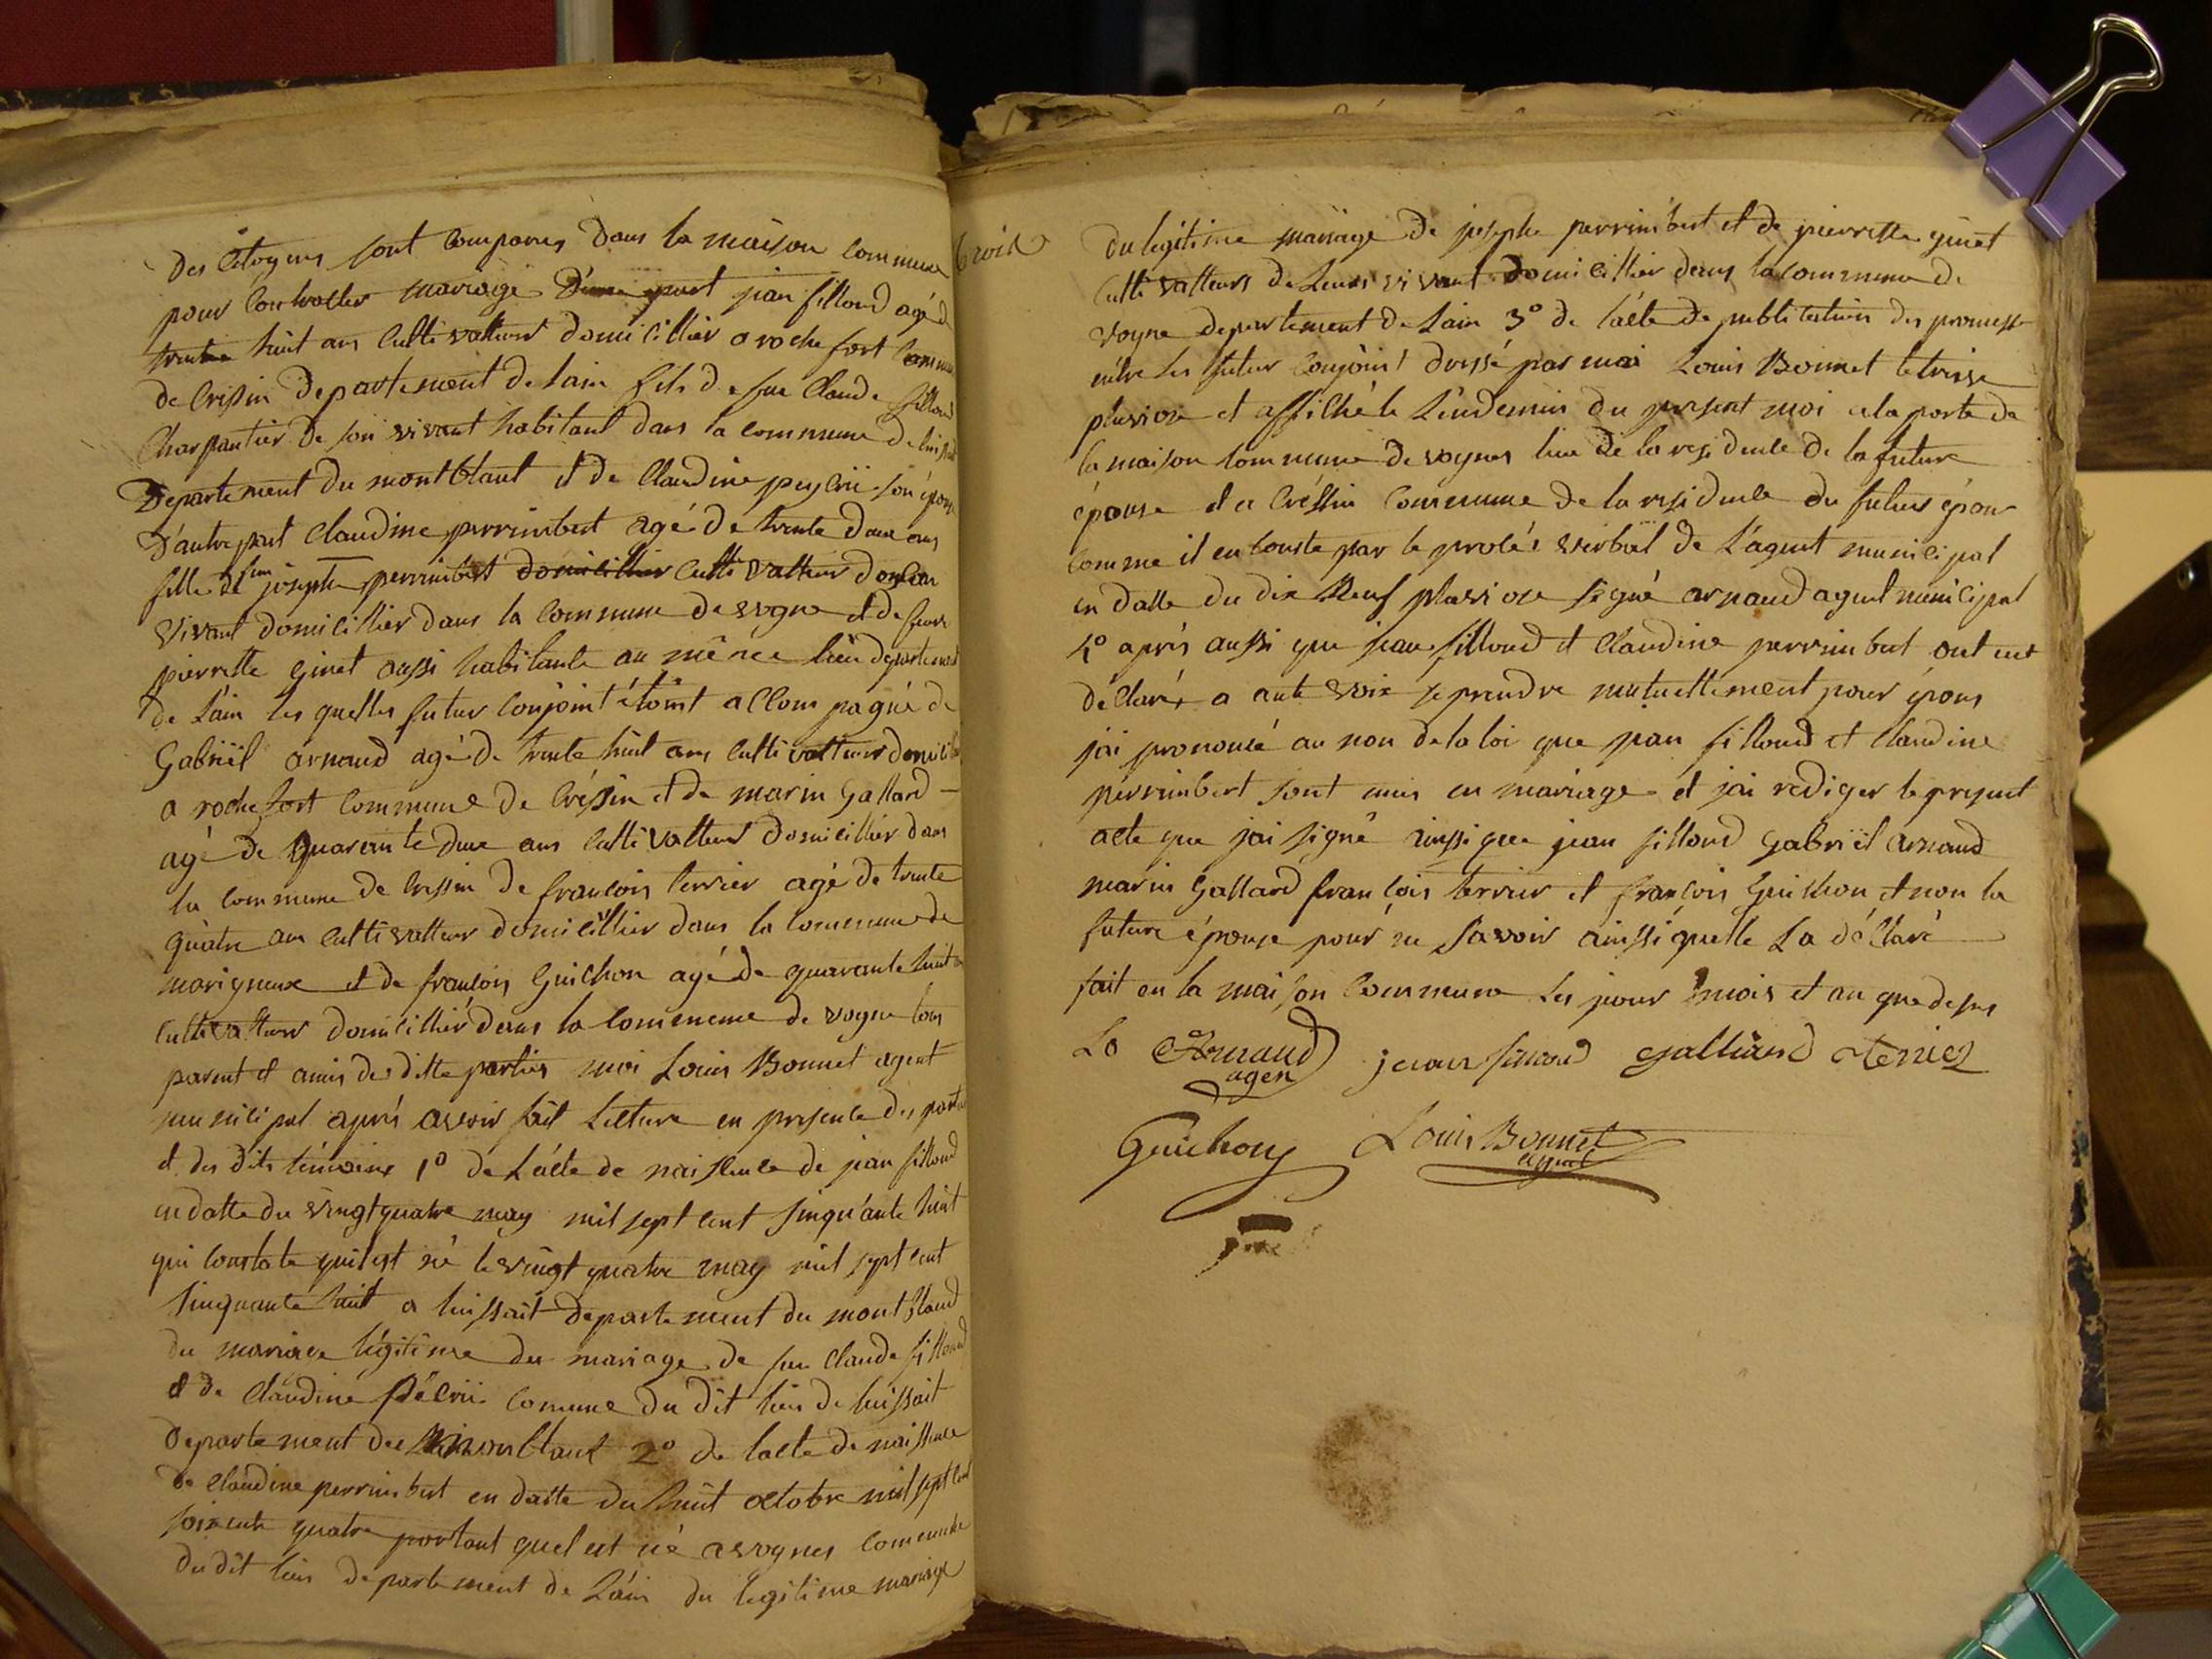 Des Citoyens sont Comparus Dans la maison Commune
pour Contracter mariage D'une part jean filloud agé de
trente huit ans Cultivatteur domicillier a rochefort Commune
de Cressin Departement de Lain fils de feu Claude fillioud
Charpantier De son vivant habitant dans la commune de
Departement du montblanc et de Claudine son épouse
D'autre part Claudine perrimbert agé de trente deux ans
fille de feu joseph perrimbert domicillier Cultivatteur
vivant domicillier dans la Commune de vogne et de feue
pierrette ginet aussi habitante au même lieu departement
de Lain les quelles futur Conjoint étoint accompagné de
Gabriel arnaud agé de trente huit ans Cultivatteur
a rochefort Commune de Cressin et de marin Gallard
agé de quarante deux ans Cultivatteur domicillier dans
la Commune de Cressin de francois terrier agé de trente
quatre ans Cultivatteur domicillier dans la Commune de
marigneux et de francois Guichon agé de quarante huit
Cultivatteur domicillier dans la Commune de vogne tous
parent et amis des ditte parties moi Louis Bonnet agent
municipal aprés avoir fait Lecture en presence des parties
et des dits témoins 1º de Lacte de naissence de jean fillioud
en datte du vingt quatre may mil sept cent sinquante huit
qui Constate quil est né le vingt quatre may mil sept cent
sinquante huit a luissait departement du mont blanc
du mariage légitime du mariage de feu Claude fillioud
et de Claudine Comune du dit lieu de luissait
departement du montblanc 2º de lacte de naissence
de Claudine perrimbert en datte du huit octobre mil sept cent
soixente quatre portant quel est né a vognes Commune
du dit lieu departement de Lain du legitime mariage
Du legitime mariage de joseph perrimbert et de pierrette ginet
Cultivatteurs de Leurs vivant domicillier dans la commune de
vogne departement de Lain 3º de lacte de publication des promesse
entre les futur Conjoint dressé par moi Louis Bonnet le treize
pluviose et affiché le Lendemin du present moi a la porte de
la maison Commune de vognes lieu de la residence de la future
épouse et a Cressin Commune de la residence du futur époux
Comme il en Conste par le procés verbal de Lagent municipal
en datte du dix neuf pluviose signé arnaud agent municipal
4º aprés aussi que jean fillioud et Claudine perrimbert ont eut
déclaré a aute voix se prendre mutuellement pour épous
jai prononcé au non de la loi que jean fillioud et Claudine
perrimbert sont unis en mariage et jai rediger le present
acte que jai signé ainssi que jean fillioud Gabriël Arnaud
marin Gallard francois terrier et francois Guichon et non la
future épouse pour ne savoir ainssi quelle La déclaré
fait en la maison Commune les jour mois et an que dessus
Arnaud jean fillioud galliand Terrier
agen
Guichon Louis Bonnet
agent